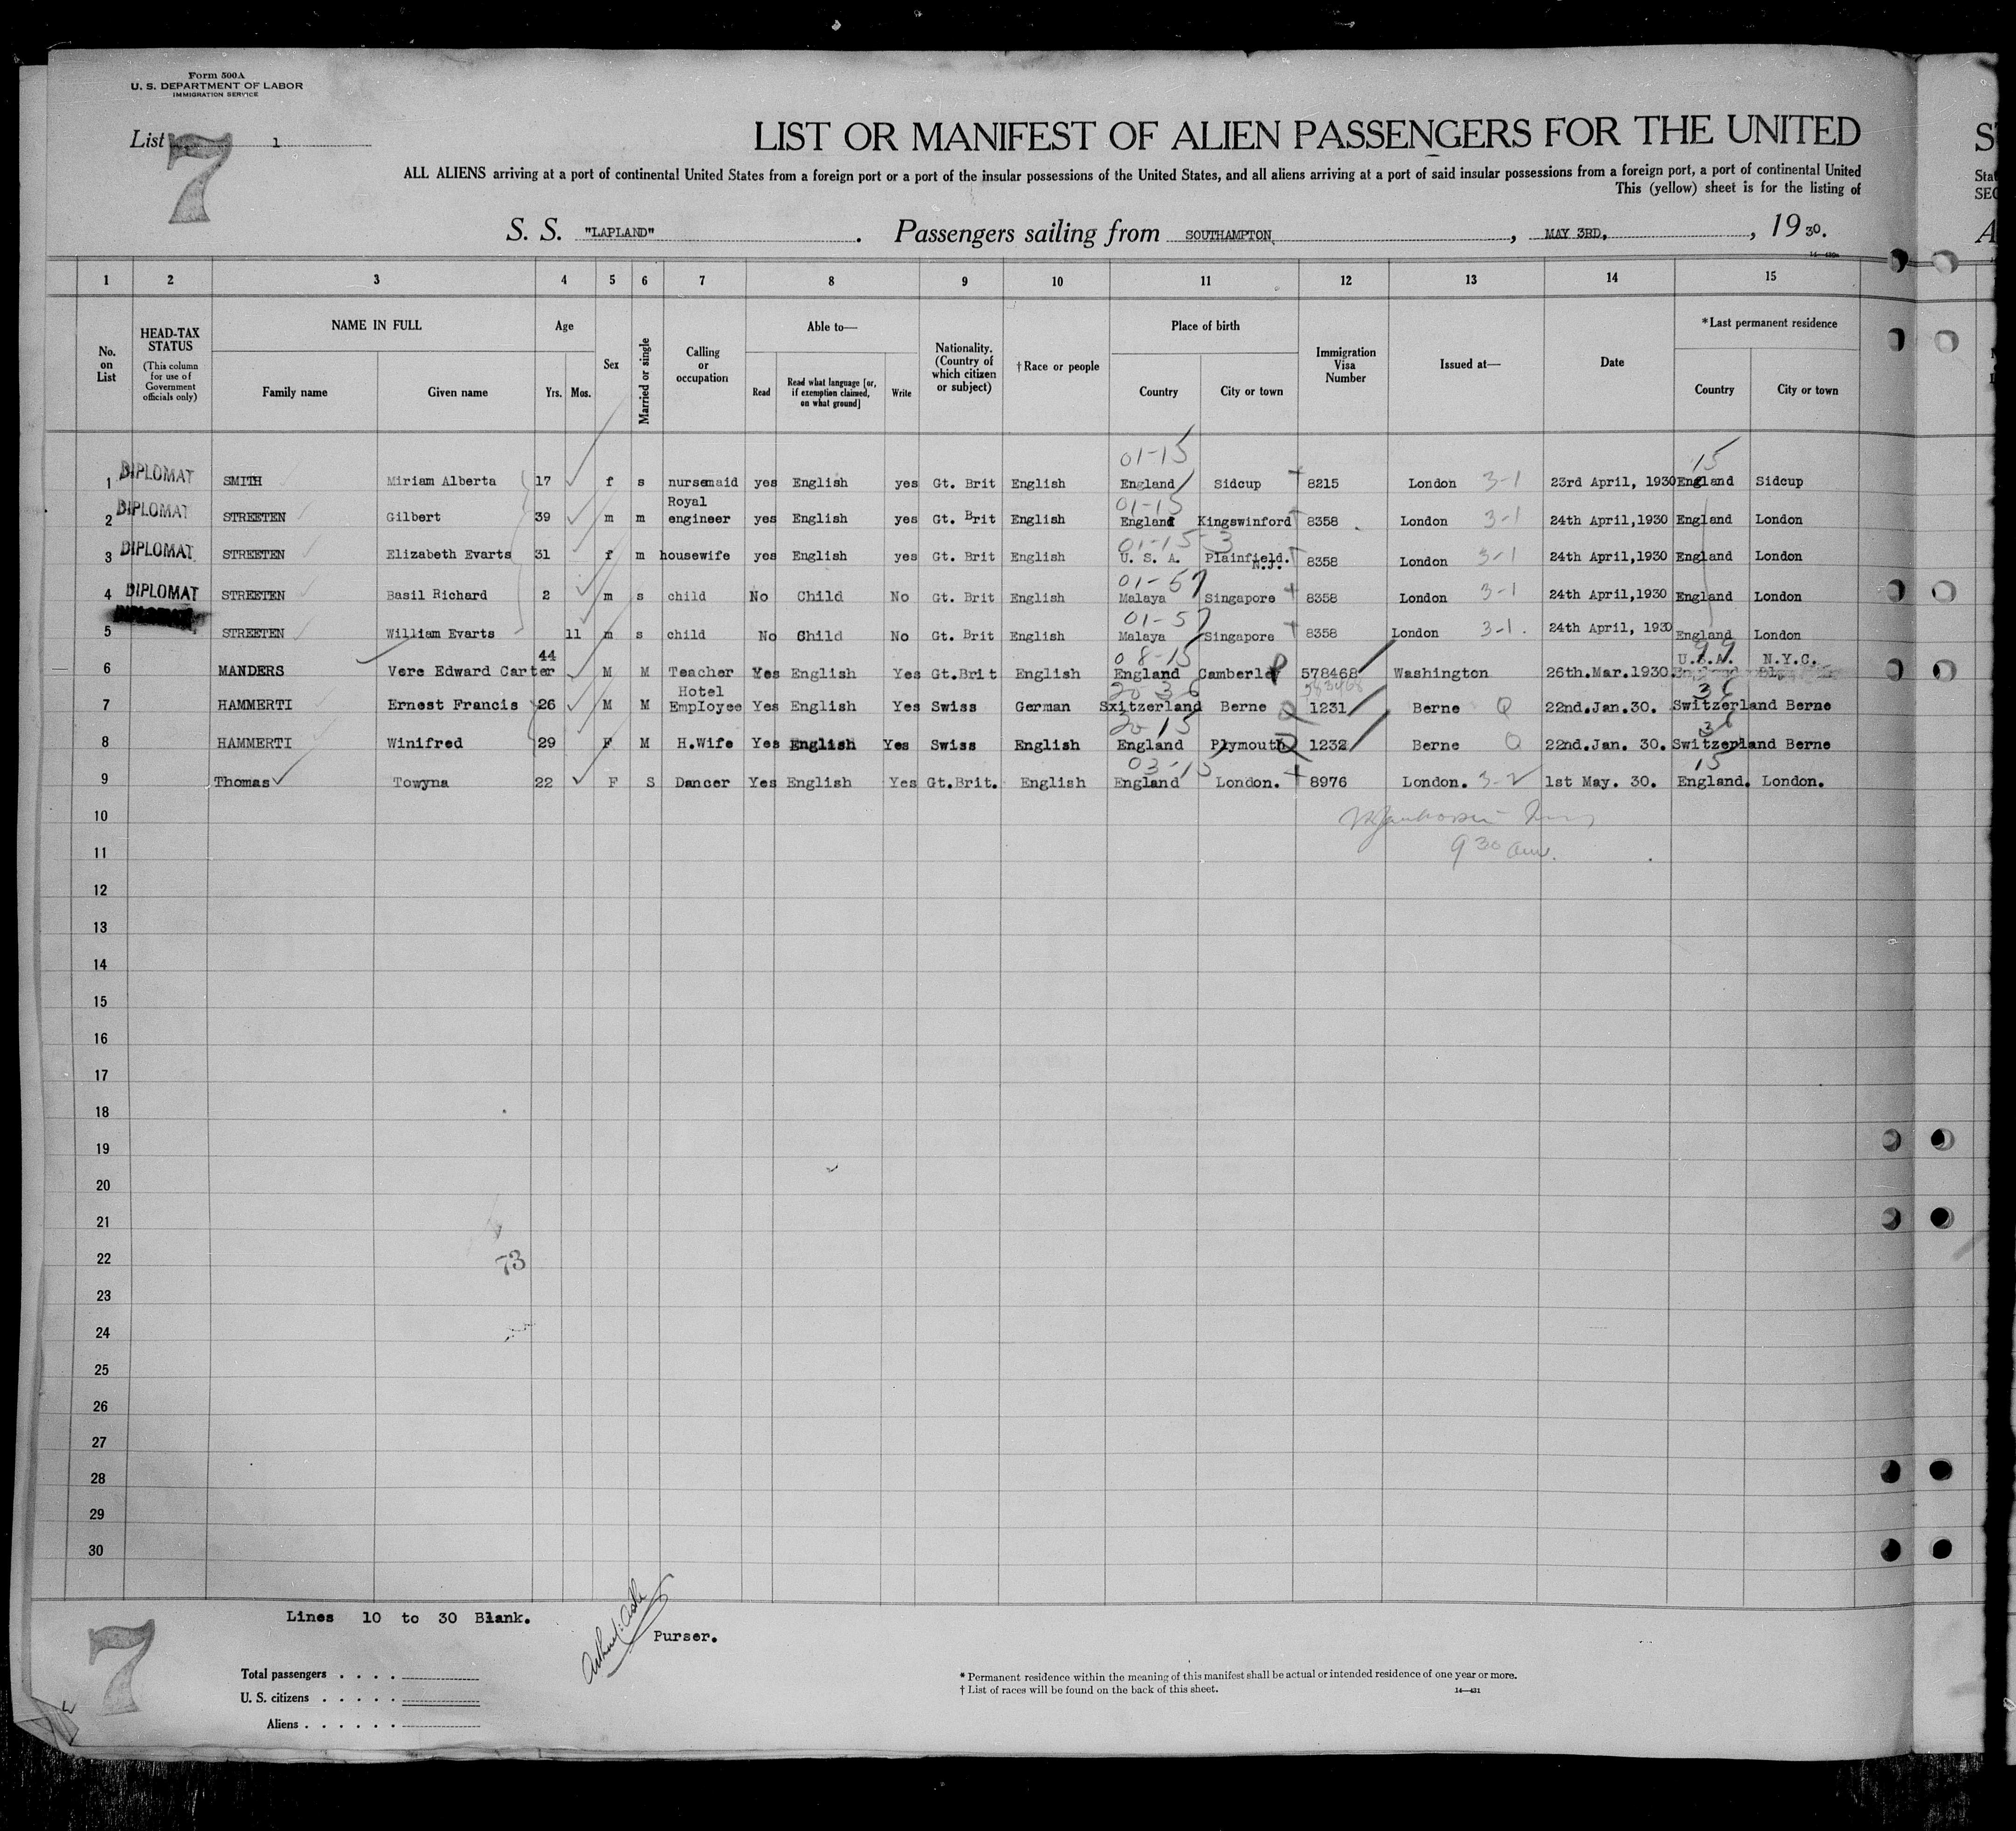 Form 500A
U. S. DEPARTMENT OF LABOR
IMMIGRATION SERVICE
List 1
7
LIST OR MANIFEST OF ALIEN PASSENGERS FOR THE UNITED
ALL ALIENS arriving at a port of continental United States from a foreign port or a port of the insular possessions of the United States, and all aliens arriving at a port of said insular possessions from a foreign port, a port of continental United
This (yellow) sheet is for the listing of
S. S. "LAPLAND". Passengers sailing from SOUTHAMPTON, MAY 3RD, , 1930.
1 2 3 4 5 6 7 8 9 10 11 12 13 14 15
No. on List
HEAD-TAX STATUS (This column for use of Government officials only)
NAME IN FULL
Family name Given name
Age
Yrs. Mos.
Sex
Married or single
Calling or occupation
Able to—
Read Read what language [or, if exemption claimed, on what ground] Write
Nationality. (Country of which citizen or subject)
† Race or people
Place of birth
Country City or town
Immigration Visa Number
Issued at—
Date
*Last permanent residence
Country City or town
01-15 15
1 DIPLOMAT SMITH Miriam Alberta 17 f s nursemaid yes English yes Gt. Brit English England Sidcup 8215 London 3-1 23rd April, 1930 England Sidcup
01-15
2 DIPLOMAT STREETEN Gilbert 39 m m Royal engineer yes English yes Gt. Brit English England Kingswinford 8358 London 3-1 24th April,1930 England London
01-15-3
3 DIPLOMAT STREETEN Elizabeth Evarts 31 f m housewife yes English yes Gt. Brit English U. S. A. Plainfield. N.J. 8358 London 3-1 24th April,1930 England London
01-57
4 DIPLOMAT STREETEN Basil Richard 2 m s child No Child No Gt. Brit English Malaya Singapore 8358 London 3-1 24th April,1930 England London
DIPLOMAT 01-57
5 STREETEN William Evarts 11 m s child No Child No Gt. Brit English Malaya Singapore 8358 London 3-1. 24th April, 1930 England London
08-15 99
6 MANDERS Vere Edward Carter 44 M M Teacher Yes English Yes Gt.Brit English England Camberley 578468 Washington 26th.Mar.1930. U.S.A. N.Y.C.
20 36 36
7 HAMMERTI Ernest Francis 26 M M Hotel Employee Yes English Yes Swiss German Sxitzerland Berne Q 1231 Berne Q 22nd.Jan.30. Switzerland Berne
20 15 36
8 HAMMERTI Winifred 29 F M H.Wife Yes English Yes Swiss English England Plymouth Q 1232 Berne Q 22nd.Jan. 30. Switzerland Berne
03-15 15
9 Thomas Towyna 22 F S Dancer Yes English Yes Gt.Brit. English England London. 8976 London. 3-2 1st May. 30. England. London.
10
9 30 am.
11
12
13
14
15
16
17
18
19
20
21
22
73
23
24
25
26
27
28
29
30
Lines 10 to 30 Blank.
Purser.
7
Total passengers . . . .
U. S. citizens . . . . .
Aliens . . . . . .
* Permanent residence within the meaning of this manifest shall be actual or intended residence of one year or more.
† List of races will be found on the back of this sheet.
14—431